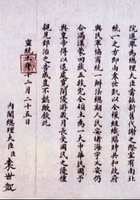 院選舉爲總理大臣當茲新舊代謝之際宜有南北
統一之方即由袁世凱以全權組織臨時共和政府
與民軍協商統一辦法總期人民安堵海宇乂安仍
合滿漢蒙回藏五族完全領土爲一大中華民國予
與皇帝得以退處寬閒優游歲月長受國民之優禮
親見郅治之告成豈不懿歟欽此
宣統三年十二月二十五日
內閣總理大臣臣袁世凱